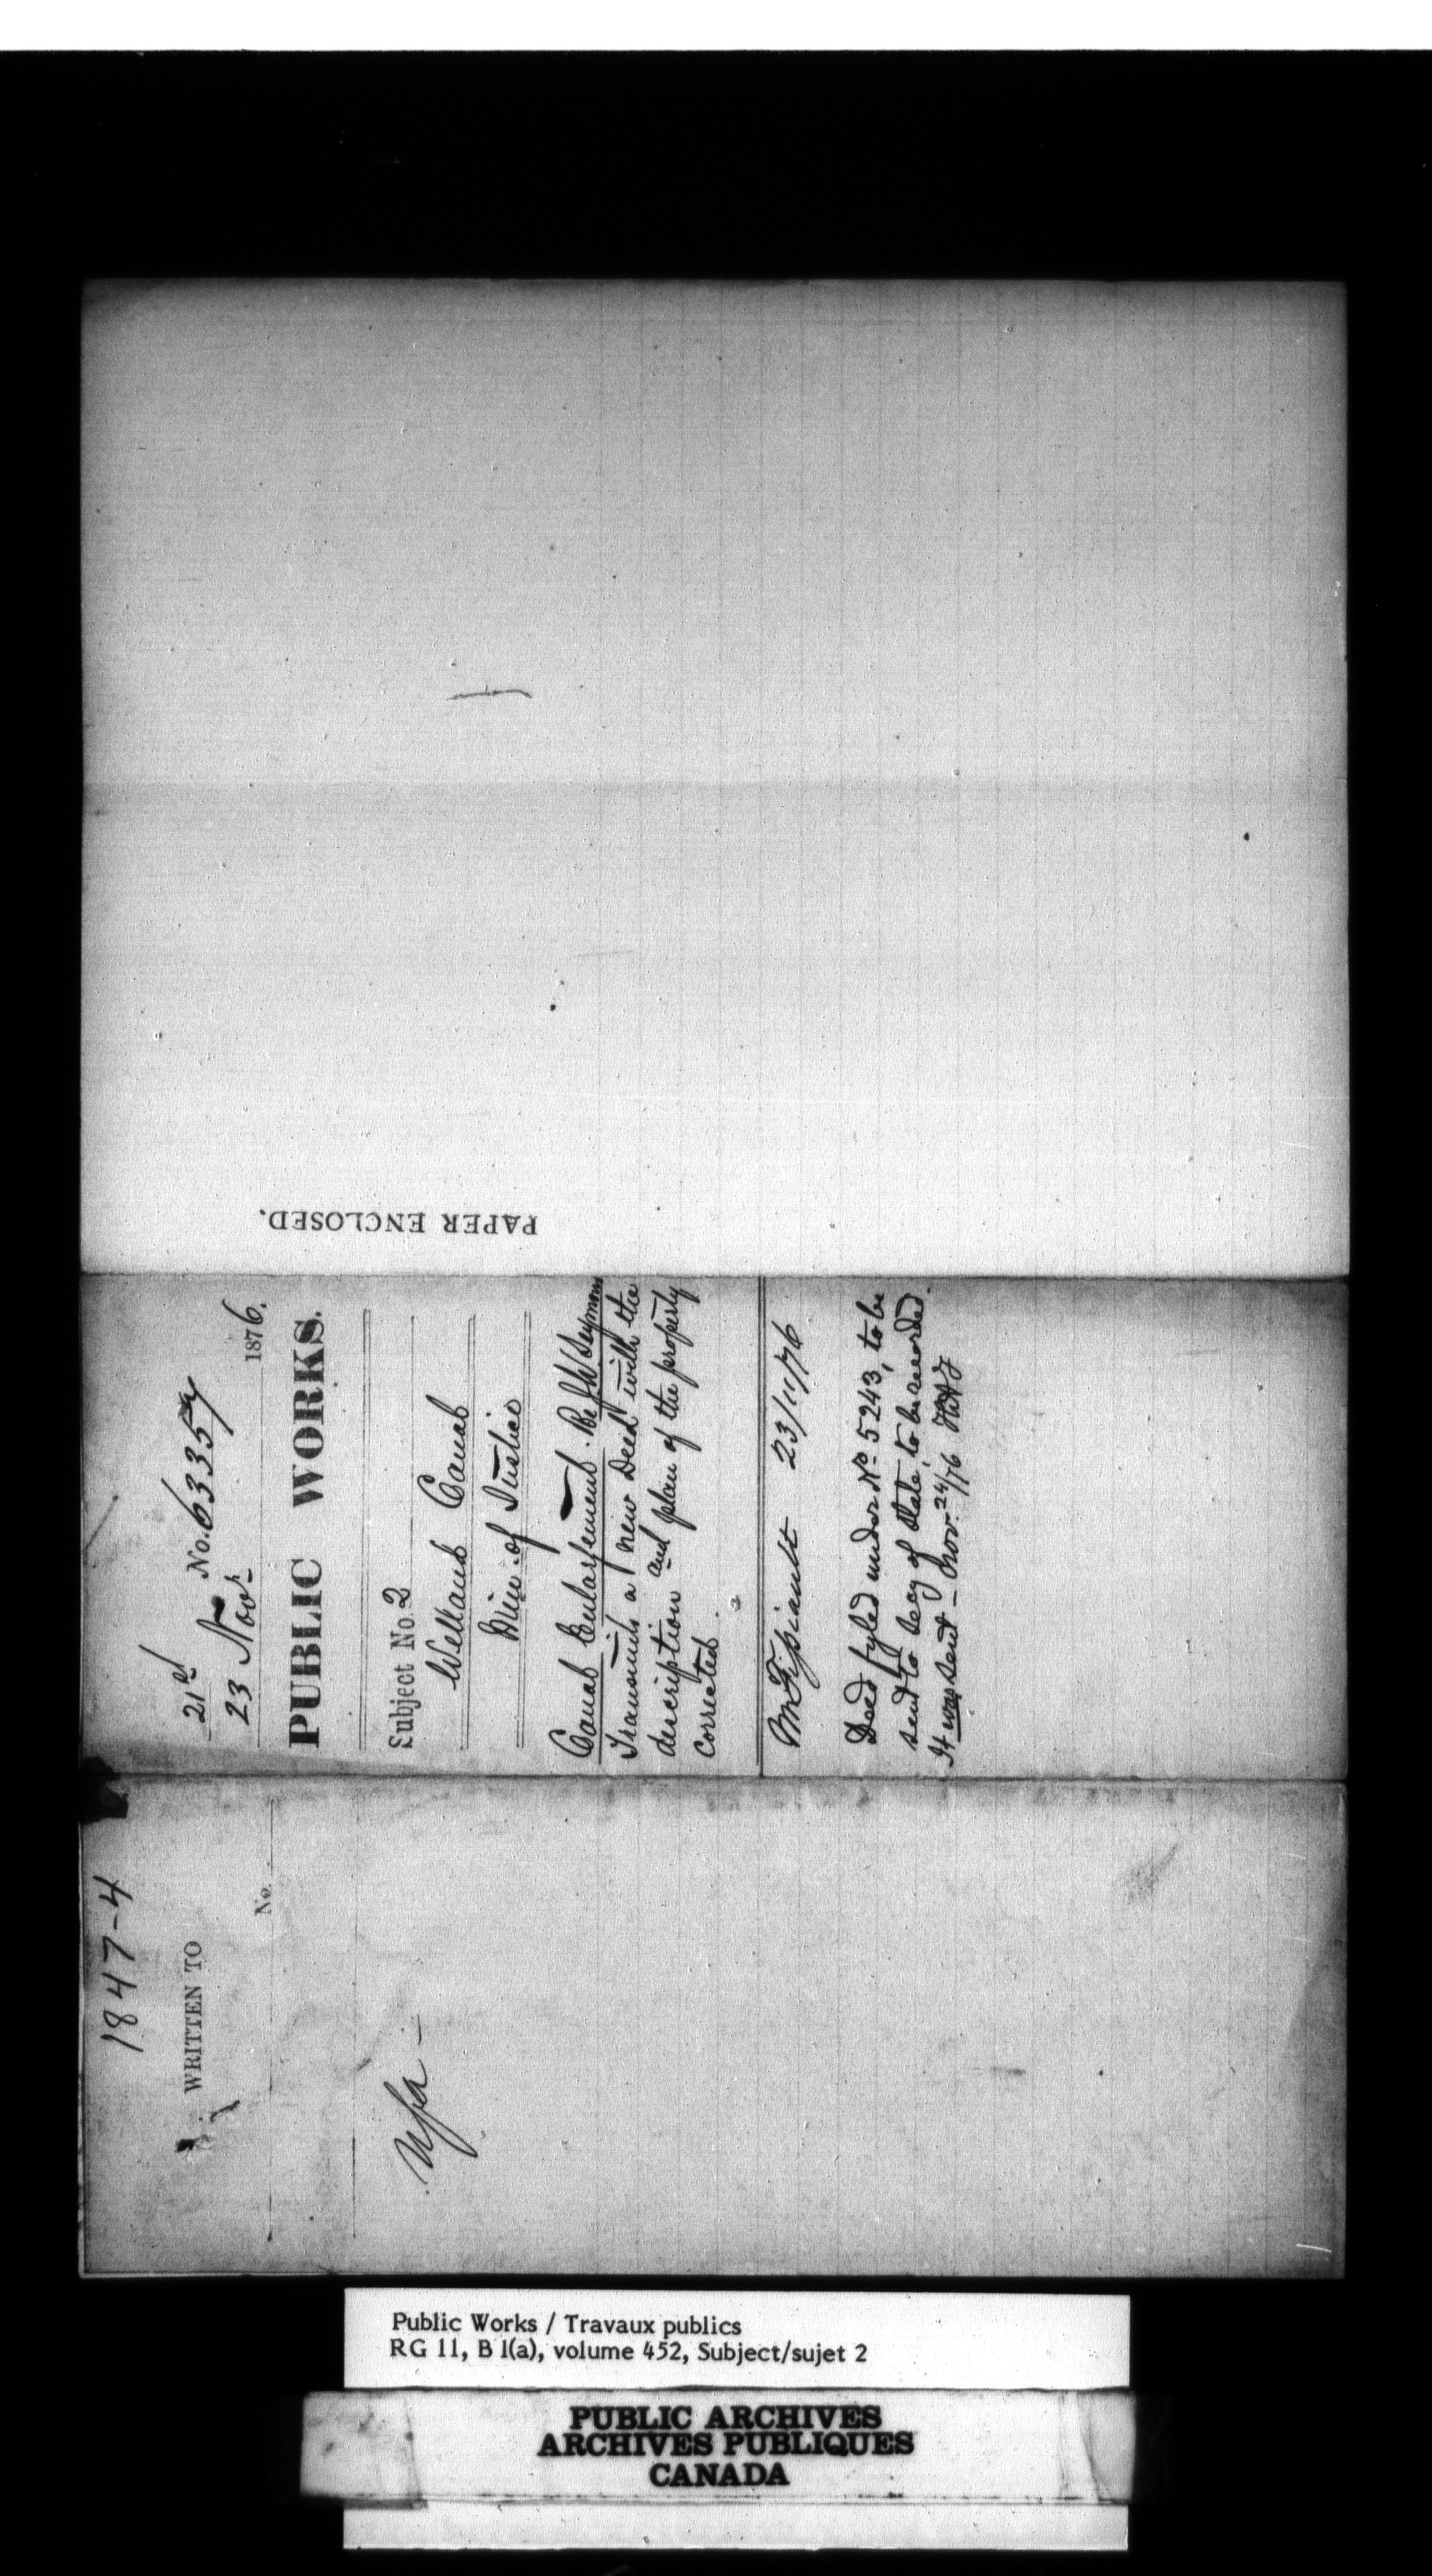 PAPER ENCLOSED.
21st No. 63357
23 Novr 1876.
PUBLIC WORKS.
Subject No. 2
Welland Canal
Min. of Justice
Canal Enlargement. Re J W Seymour
Transmits a new Deed with the
description and plan of the property
corrected.
23/11/76
Deed fyled under No 5243, to be
sent to Secy of State, to be recorded.
It was sent - Nov. 24/76
1847-4
WRITTEN TO
No.
Public Works / Travaux publics
RG 11, B 1(a), volume 452, Subject/sujet 2
PUBLIC ARCHIVES
ARCHIVES PUBLIQUES
CANADA